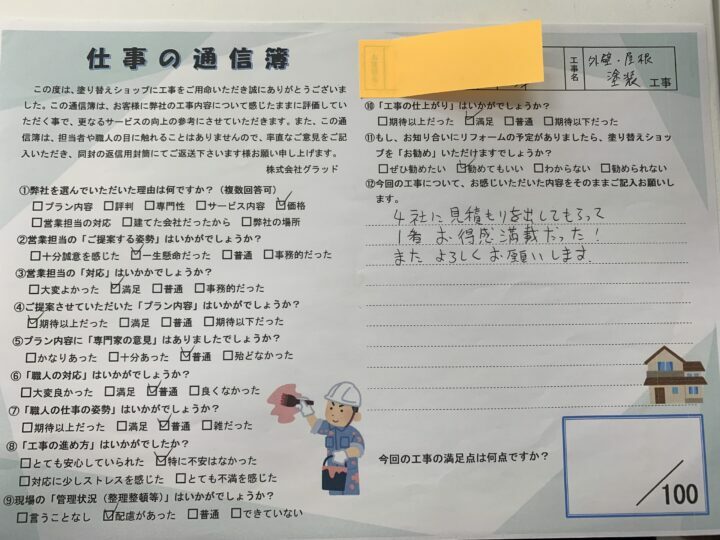 仕事の通信簿
この度は、塗り替えショップに工事をご用命いただき誠にありがとうございま
した。この通信簿は、お客様に弊社の工事内容について感じたままに評価してい
ただく事で、更なるサービスの向上の参考にさせていただきます。また、この通
信簿は、担当者や職人の目に触れることはありませんので、率直なご意見をご記
入いただき、同封の返信用封筒にてご返送下さいます様お願い申し上げます。
株式会社グラッド
①弊社を選んでいただいた理由は何ですか？（複数回答可）
□プラン内容 □評判 □専門性 □サービス内容 ☑価格
□営業担当の対応 □建てた会社だったから □弊社の場所
②営業担当の「ご提案する姿勢」はいかがでしょうか？
□十分誠意を感じた ☑一生懸命だった □普通 □事務的だった
③営業担当の「対応」はいかかでしょうか？
□大変よかった ☑満足 □普通 □事務的だった
④ご提案させていただいた「プラン内容」はいかがでしょうか？
☑期待以上だった □満足 □普通 □期待以下だった
⑤プラン内容に「専門家の意見」はありましたでしょうか？
□かなりあった □十分あった ☑普通 □殆どなかった
⑥「職人の対応」はいかがでしょうか？
□大変良かった □満足 ☑普通 □良くなかった
⑦「職人の仕事の姿勢」はいかがでしょうか？
□期待以上だった □満足 ☑普通 □雑だった
⑧「工事の進め方」はいかがでしたか？
□とても安心していられた ☑特に不安はなかった
□対応に少しストレスを感じた □とても不満を感じた
⑨現場の「管理状況（整理整頓等）」はいかがでしょうか？
□言うことなし ☑配慮があった □普通 □できていない
工事名
外壁・屋根
塗装 工事
⑩「工事の仕上がり」はいかがでしょうか？
□期待以上だった ☑満足 □普通 □期待以下だった
⑪もし、お知り合いにリフォームの予定がありましたら、塗り替えショッ
プを「お勧め」いただけますでしょうか？
□ぜひ勧めたい ☑勧めてもいい □わからない □勧められない
⑫今回の工事について、お感じいただいた内容をそのままご記入お願いし
ます。
4社に見積もりを出してもらって
1番お得感満載だった！
またよろしくお願いします
今回の工事の満足点は何点ですか？
/100